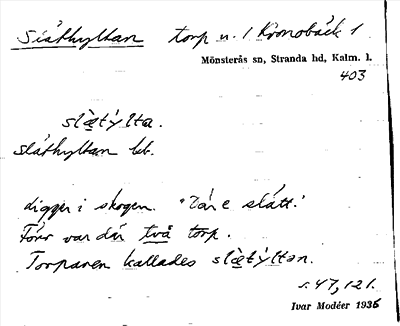 Slåthyltan torp u. 1 Kronobäck 1.
Mönsterås sn, Stranda hd, Kalm. l.
403
slæ̀týlta.
slåthyltan bt.
digger i skogen. "Där e slått."
Förr var där två torp.
Torparen kallades slæ̀týltən.
s. 47, 121.
Ivar Modéer 1936